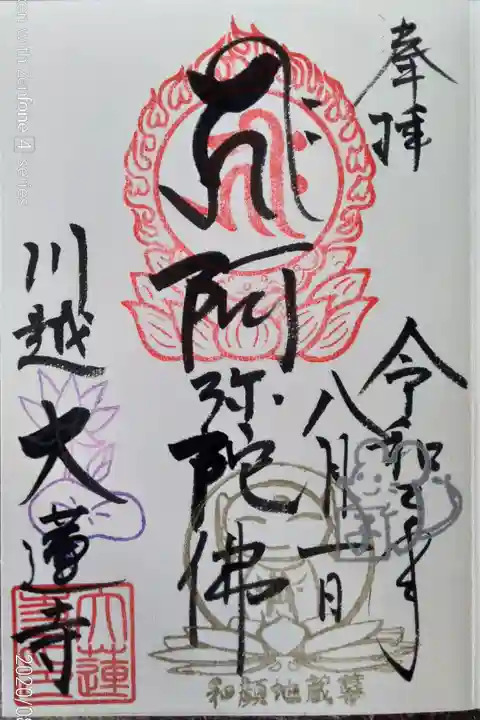 奉拝
令和二年
八月一日
阿弥陀佛
和顔地蔵尊
川越
大蓮寺
with zenfone 4 series
2020/0